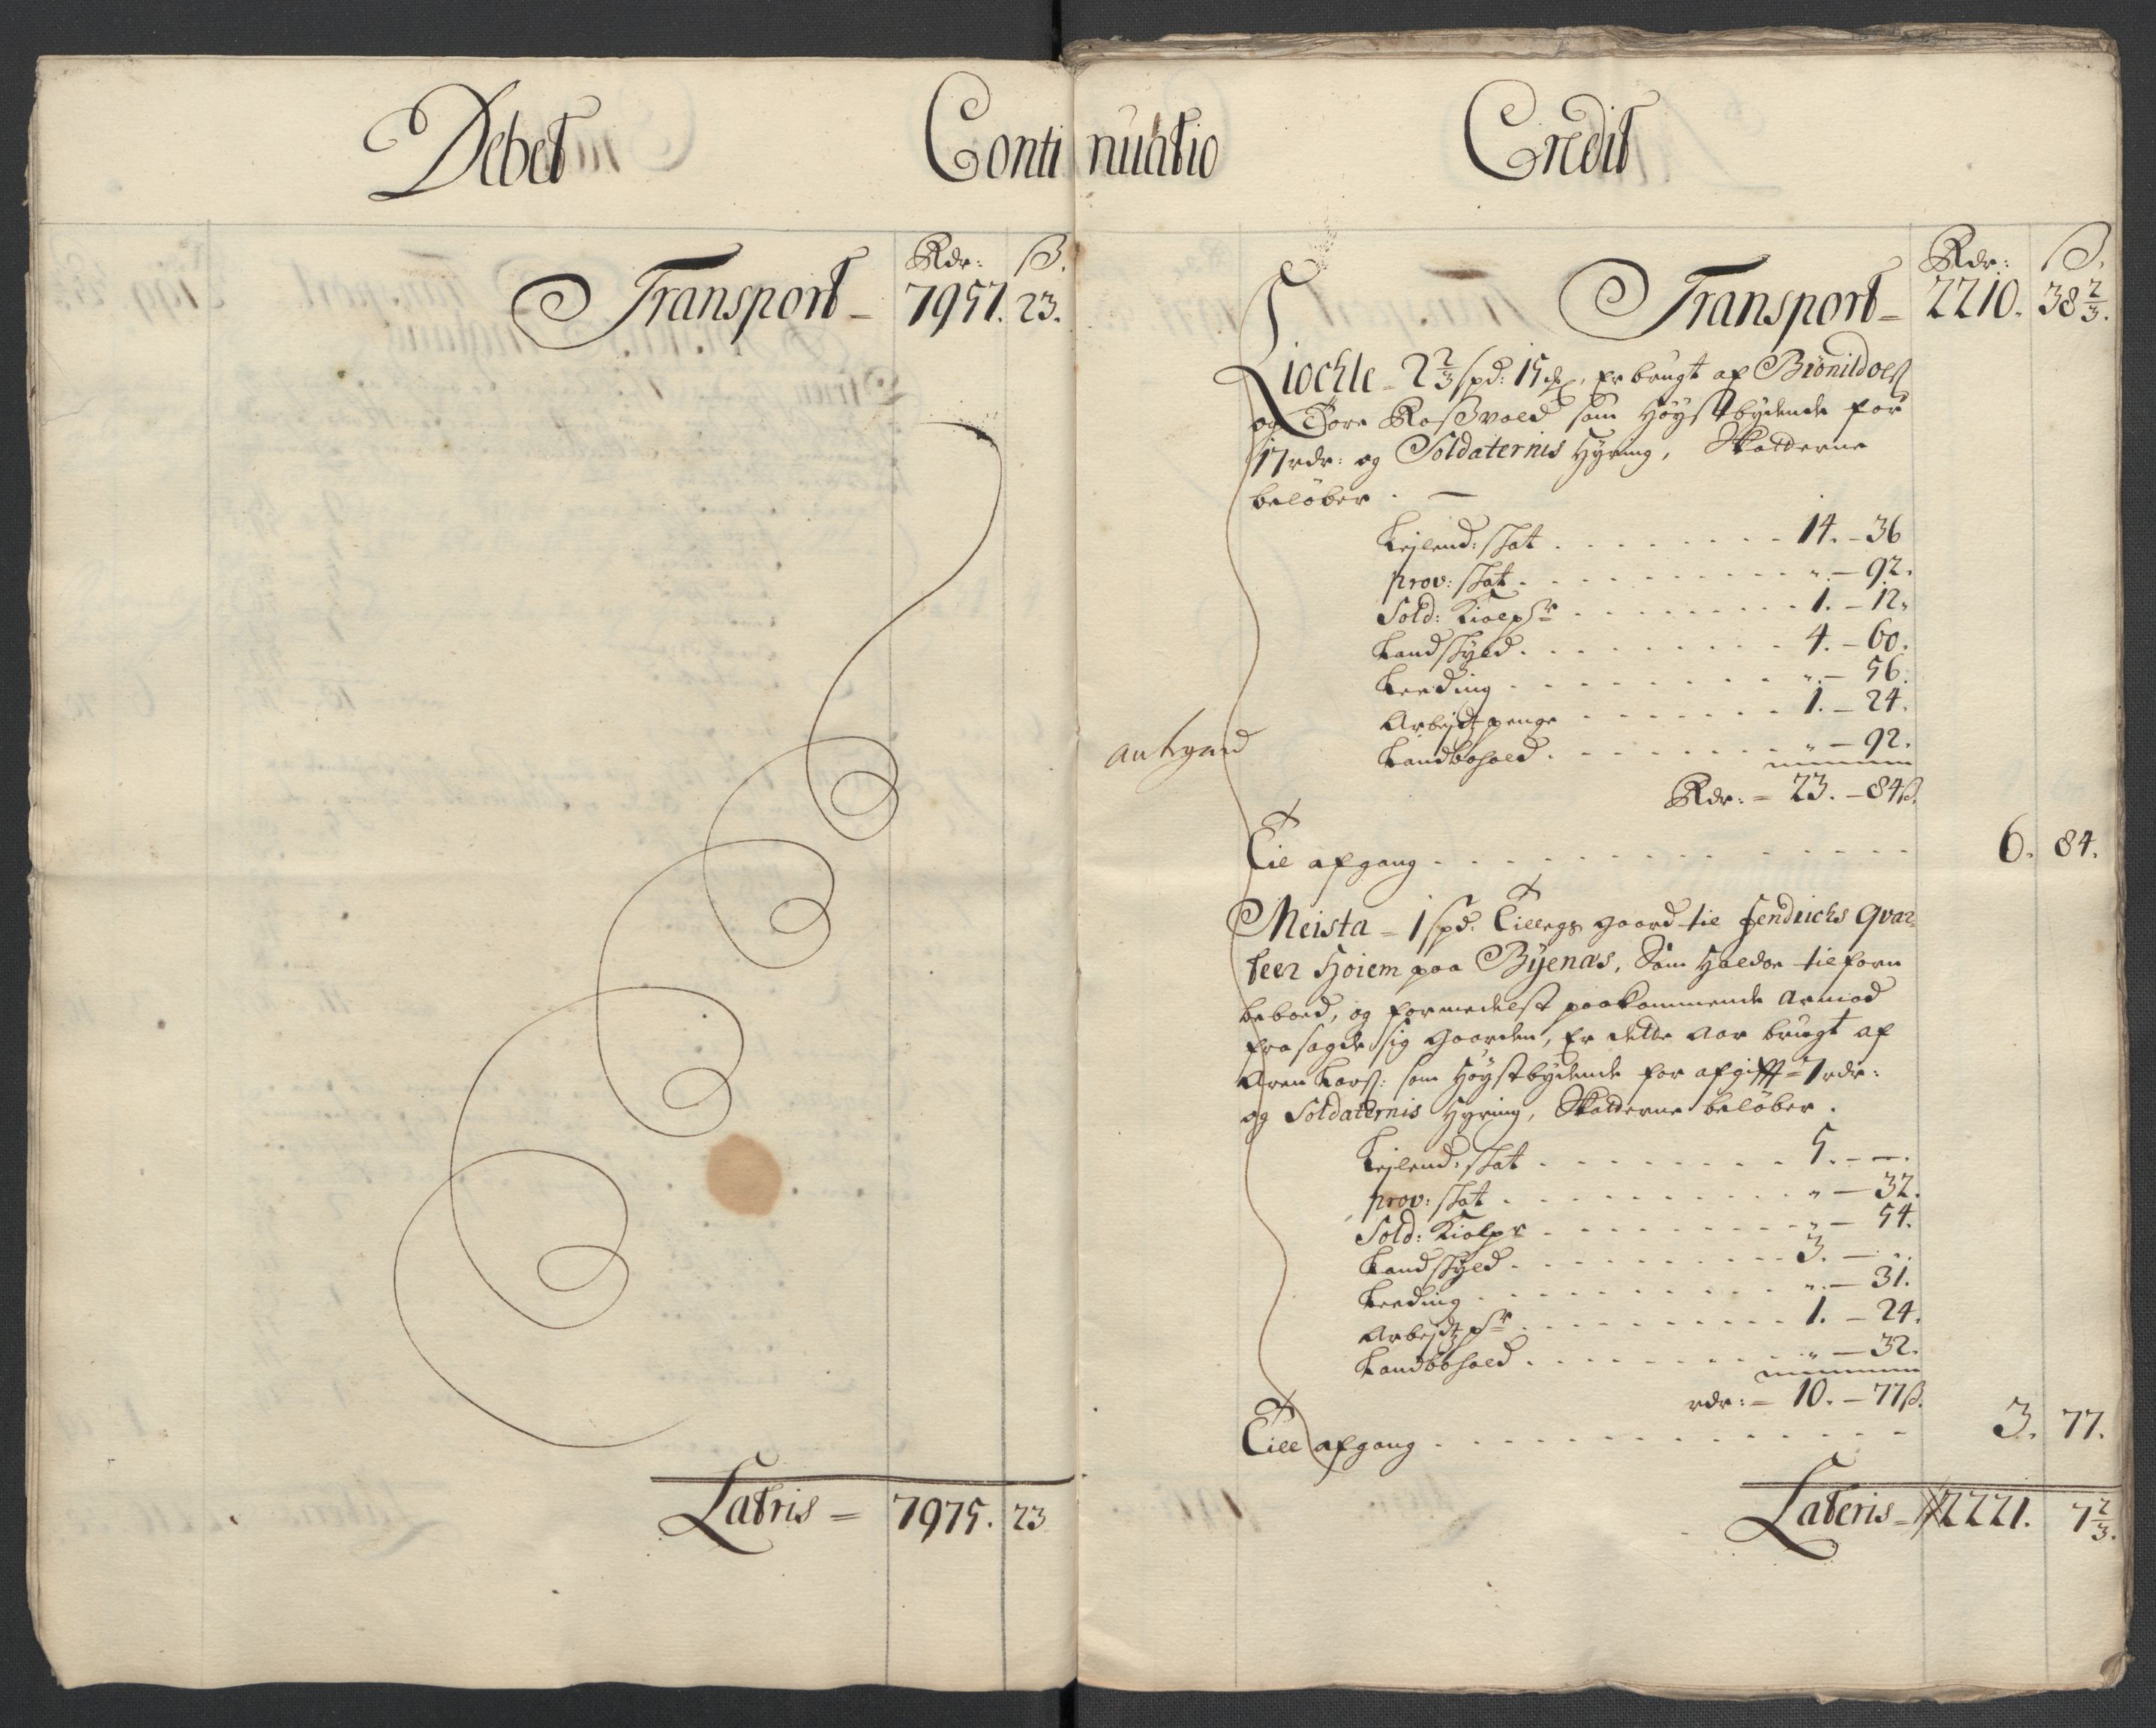 Debet
Continuatio
Credit
Rdr: ß.
Transport – 7957. 23.
Latris = 7975. 23
Rdr: ß.
Transport – 2210. 38 2/3.
Liochle – 2 2/3 spd: 15 , Er brugt af Brönild oels
og Tore Rossvold som Høystbydende for
17 rdr: og Soldaternis Hyring, Skatterne
beløber . –
Lejlend: skat . . . . . . . 14. – 36
prov: skat . . . . . . . . „ – 92.
Sold: Kiolepr . . . . . . . 1. – 12.
Landskyld . . . . . . . 4. – 60.
Leeding . . . . . . . . „ – 56.
Arbejdtzpenge . . . . . . 1. – 24.
Landbohold . . . . . . . „ – 92.
Rdr: = 23. – 84 ß.
Til afgang . . . . . . . . . . 6. 84.
Meista – 1 spd. Tillegs gaard til Hendrichs Qvar=
teer Hoiem paa Byenæs, Som Haldor tilforn
beboed, og formedelst paakommende Armod
frasagde sig gaarden, Er dette Aar brugt af
Aren Lars: som Høystbydende for afgifft – 7 rdr:
og Soldaternis Hyring, Skatterne beløber .
Lejlend: skat . . . . . . . 5. – –.
prov: skat . . . . . . . . „ – 32.
Sold: Kiolepr . . . . . . . „ – 54.
Landskyld . . . . . . . . 3. – „.
Leeding . . . . . . . . „ – 31.
Arbejdtz pr . . . . . . . 1. – 24.
Landbohold . . . . . . . „ – 32.
rdr: = 10. – 77 ß.
Till afgang . . . . . . . . . . 3. 77.
Lateris – 2221. 7 2/3.